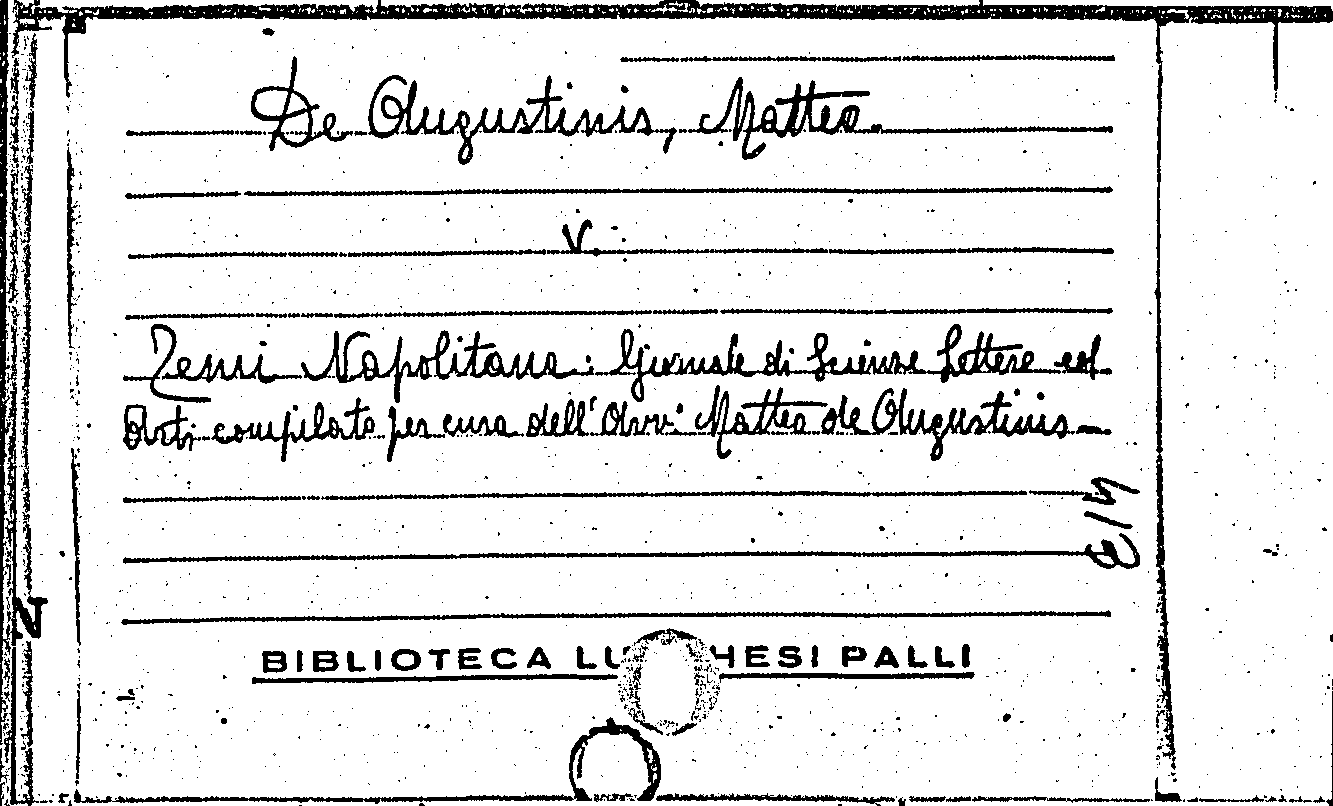 De Augustinis, Matteo.
v.
Temi Napolitana: Giornale di Scienze Lettere ed
Arti compilato per cura dell'Avv: Matteo de Augustinis
BIBLIOTECA LU HESI PALLI
N